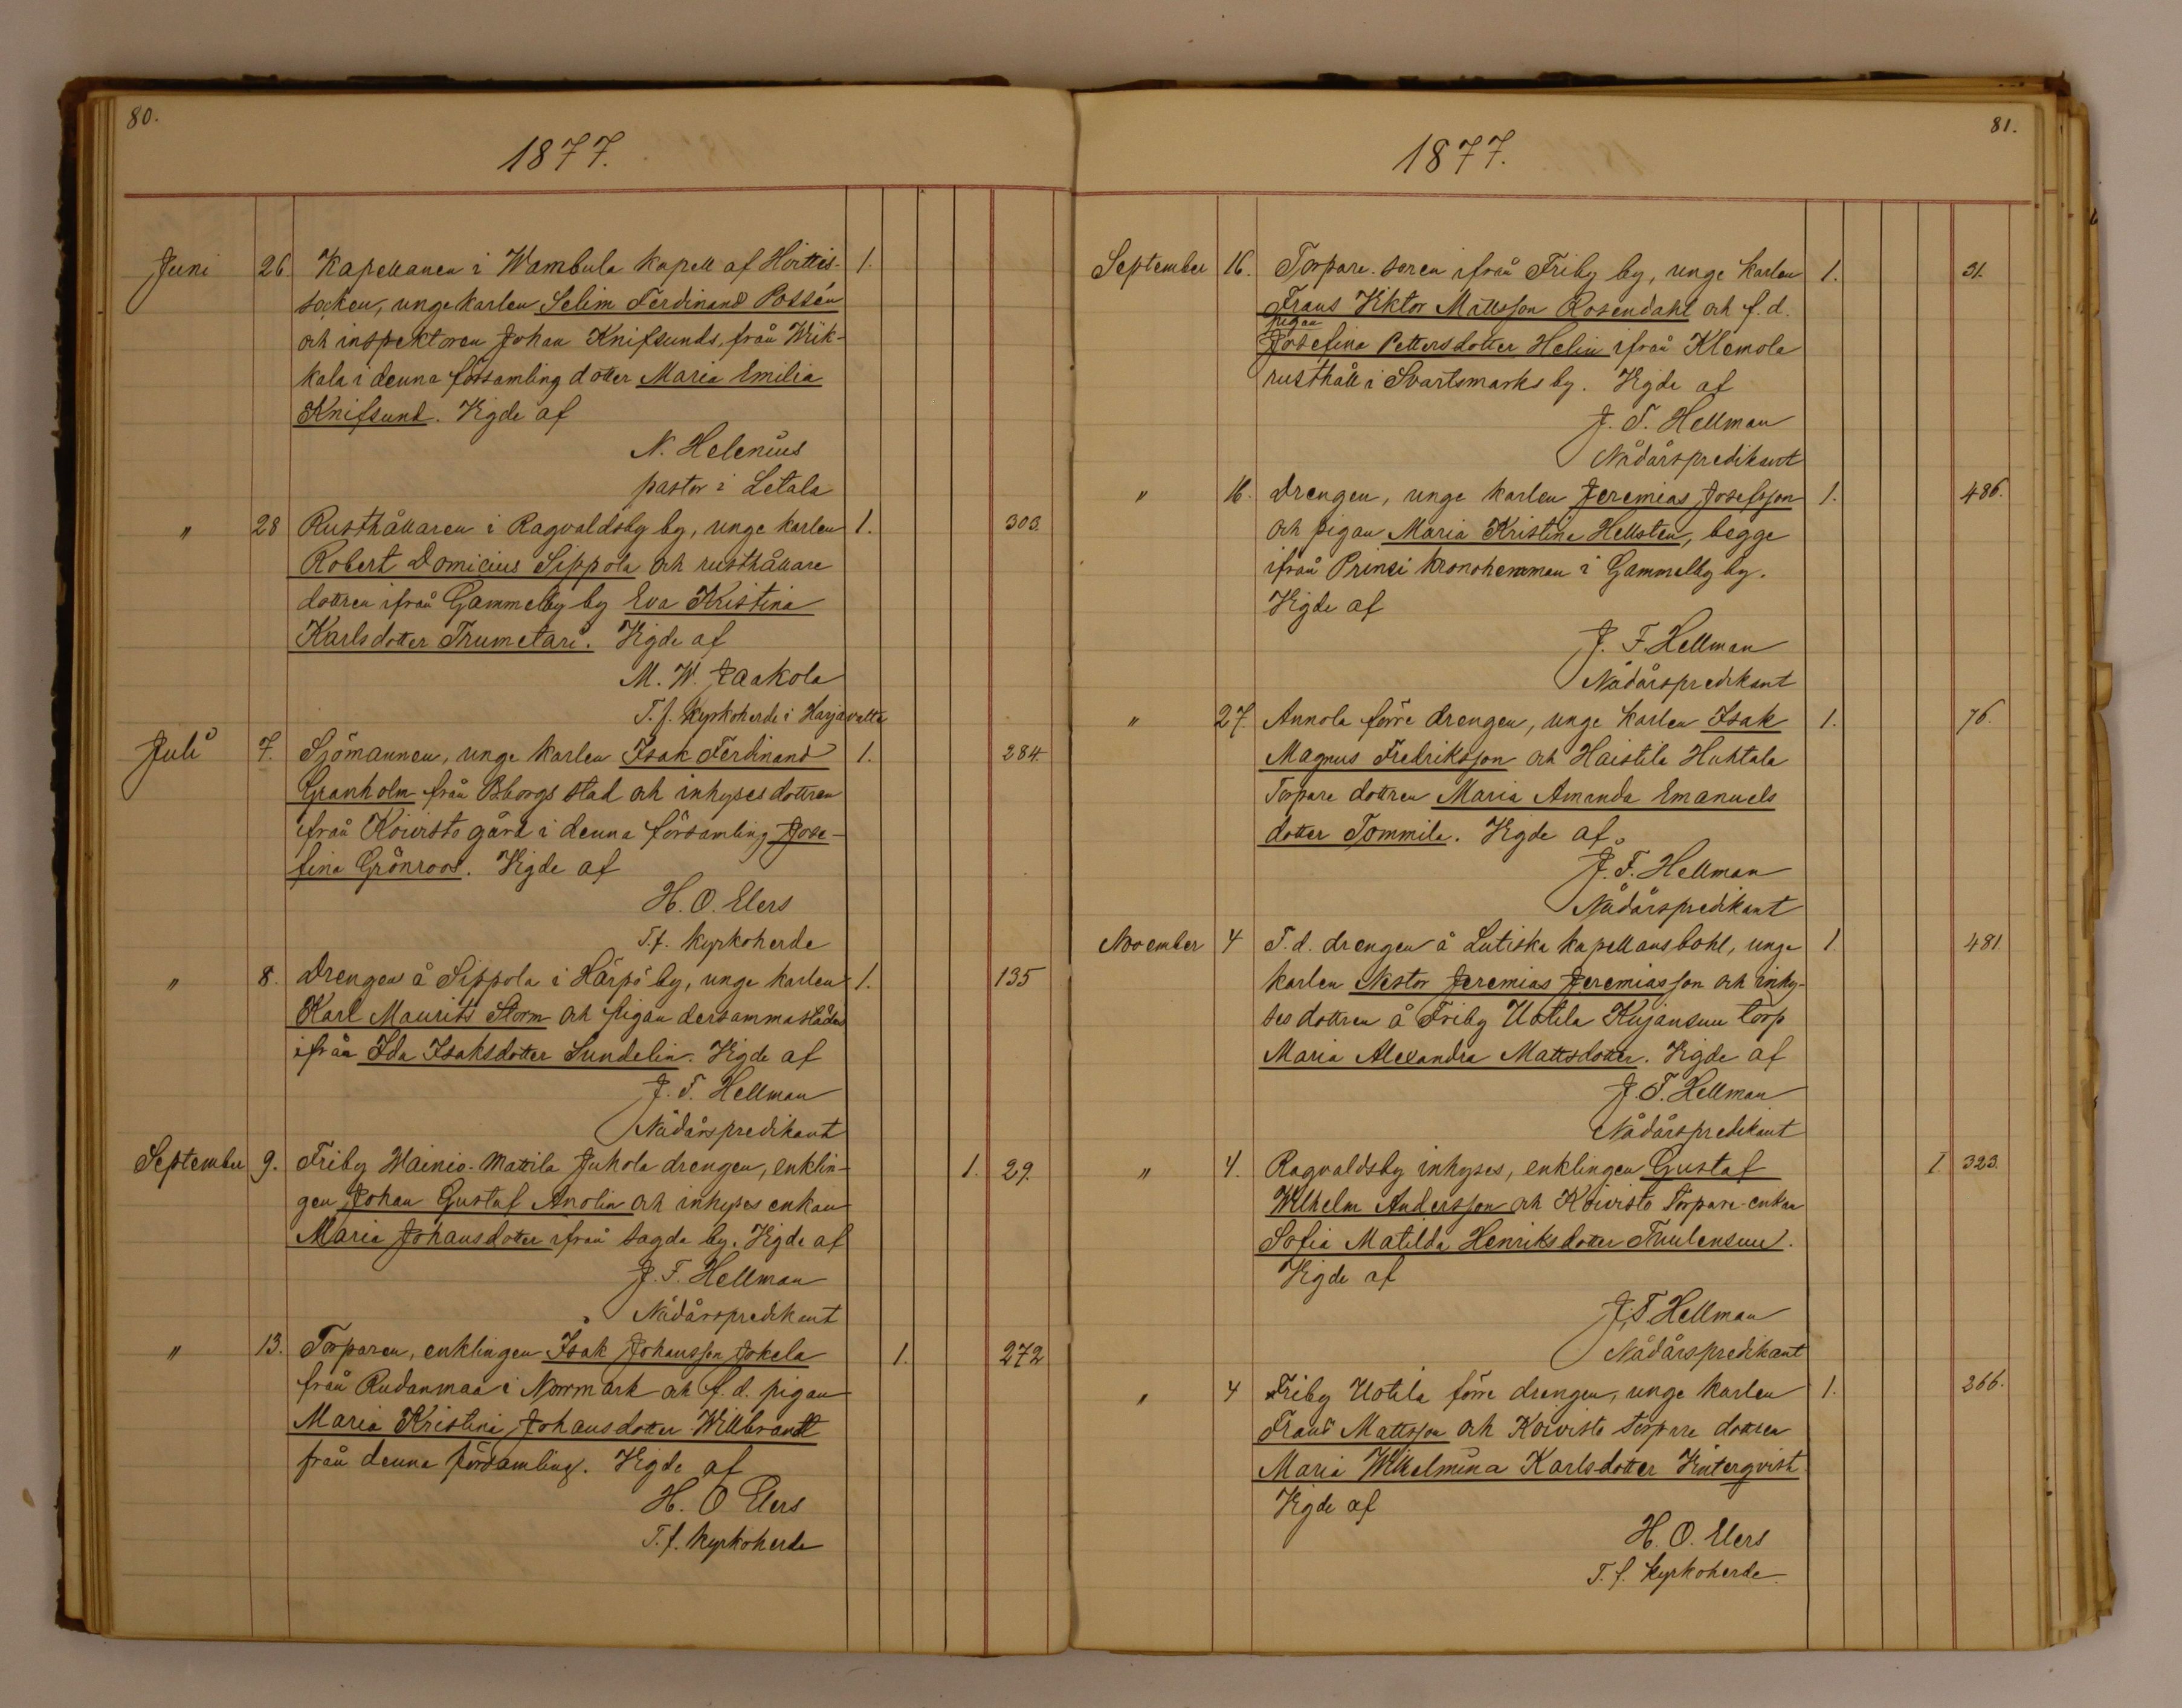 80.
1877.
Juni 26. Kapellanen i Wambula kapell af Hvittis- 1.
socken, unge karlen Selim Ferdinand Possén
och inspektoren Johan Knifsunds, från Wiik-
kala i denna församling dotter Maria Emilia
Knifsund. Vigde af
N. Helenius
pastor i Letala
" 28 Rusthållaren i Ragvaldsby by, unge karlen 1. 303.
Robert Domicius Sippola och rusthållare
dottren ifrån Gammelby by Eva Kristina
Karlsdotter Trumetari. Vigde af
M. W. Jaakola
T.f. Kyrkoherde i Harjavalta
Juli 7. Sjömannen, unge karlen Isak Ferdinand 1. 284.
Granholm från Bborgs stad och inhysesdottren
ifrån Koivisto gård i denna församling Jose-
fina Grönroos. Vigde af
H. O. Elers
T.f. Kyrkoherde
" 8. Drengen å Sippola i Härpö by, unge karlen 1. 135
Karl Maurits Storm och pigan dersammastädes
ifrån Ida Isaksdotter Sundelin. Vigde af
J. F. Hellman
Nådårspredikant
September 9. Friby Wainio-Mattila Juhola drengen, enklin- 1. 29.
gen Johan Gustaf Anolin och inhyses enkan
Maria Johansdotter ifrån sagda by. Vigde af
J. F. Hellman
Nådårspredikant
" 13. Torparen, enklingen Isak Johansson Jokela 1. 272
från Rudanmaa i Norrmark och f. d. pigan
Maria Kristina Johansdotter Willbrandt
från denna församling. Vigde af
H. O Elers
T. f. Kyrkoherde
81.
1877.
September 16. Torpare-sonen ifrån Friby by, unge karlen 1. 31.
Frans Viktor Mattsson Rosendahl och f. d.
pigan
Josefina Pettersdotter Helin ifrån Klemola
rusthåll i Svartsmarks by. Vigde af
J. F. Hellman
Nådårspredikant
" 16. Drengen, unge karlen Jeremias Josefsson 1. 486.
och pigan Maria Kristina Hellsten, begge
ifrån Prinsi kronohemman i Gammelby by.
Vigde af
J. F. Hellman
Nådårspredikant
" 27. Annola förre drengen, unge karlen Isak 1. 76.
Magnus Fredriksson och Haistila Huhtala
Torpare dottren Maria Amanda Emanuels
dotter Tommila. Vigde af
J. F. Hellman
Nådårspredikant
November 4 F. d. drengen å Lutiska kapellansbohl, unge 1. 481.
karlen Nestor Jeremias Jeremiasson och inhy-
ses dottren å Friby Uotila Kujansuu torp
Maria Alexandra Mattsdotter. Vigde af
J. F. Hellman
Nådårspredikant
" 4. Ragvaldsby inhyses, enklingen Gustaf 1 323.
Wilhelm Andersson och Koivisto Torpare-enkan
Sofia Matilda Henriksdotter Thulensuu.
Vigde af
J. F. Hellman
Nådårspredikant
" 4 Friby Uotila förre drengen, unge karlen 1. 366.
Frans Mattsson och Koivisto torpare dottren
Maria Wilhelmina Karlsdotter Winterqvist
Vigde af
H. O. Elers
T. f. Kyrkoherde.